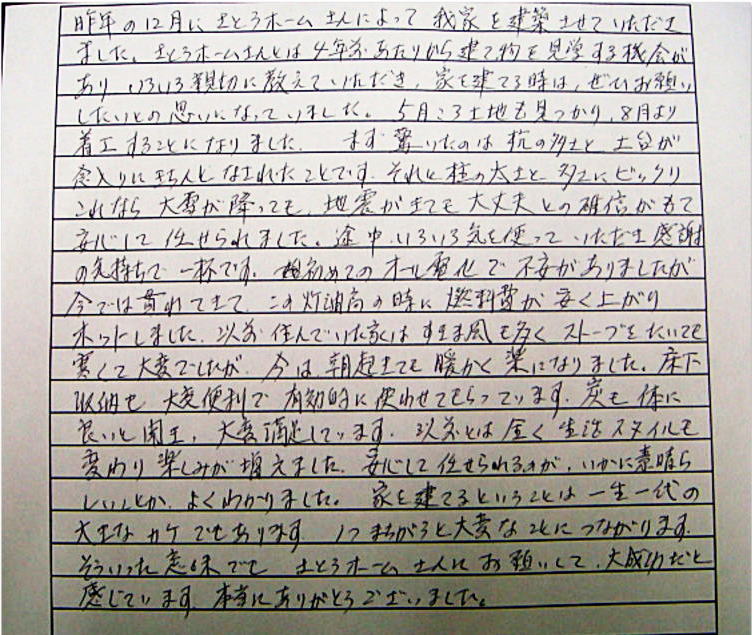 昨年の12月にさとうホームさんによって我家を建築させていただき
ました。さとうホームさんとは4年前あたりから建て物を見学する機会が
あり いろいろ親切に教えていただき、家を建てる時は、ぜひお願い
したいとの思いになっていました。5月ころ土地も見つかり、8月より
着工することになりました。 まず驚いたのは杭の多さと土台が
念入りにきちんとなされたことです。それと柱の太さと多さにビックリ
これなら大雪が降っても、地震がきても大丈夫との確信がもて
安心して任せられました。途中、いろいろ気を使っていただき感謝
の気持ちで一杯です。初めてのオール電化で不安がありましたが
今では慣れてきて、この灯油高の時に燃料費が安く上がり
ホットしました。以前住んでいた家はすきま風も多くストーブをたいても
寒くて大変でしたが、今は朝起きても暖かく楽になりました。床下
収納も大変便利で有効的に使わせてもらっています。炭も体に
良いと聞き、大変満足しています。以前とは全く生活スタイルも
変わり楽しみが増えました。安心して任せられるのが、いかに素晴ら
しいことか、よくわかりました。家を建てるということは一生一代の
大きなカケでもあります。1つまちがうと大変なことにつながります。
そういった意味でも さとうホームさんにお願いして、大成功だと
感じています。本当にありがとうございました。